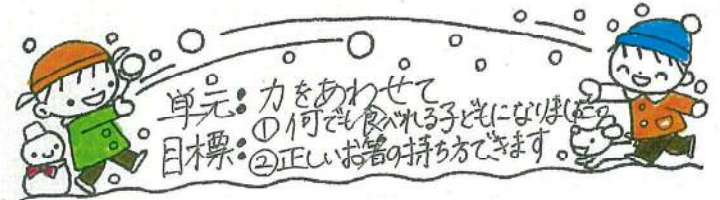 単元：力をあわせて
①何でも食べれる子どもになりました。
目標：②正しいお箸の持ち方できます